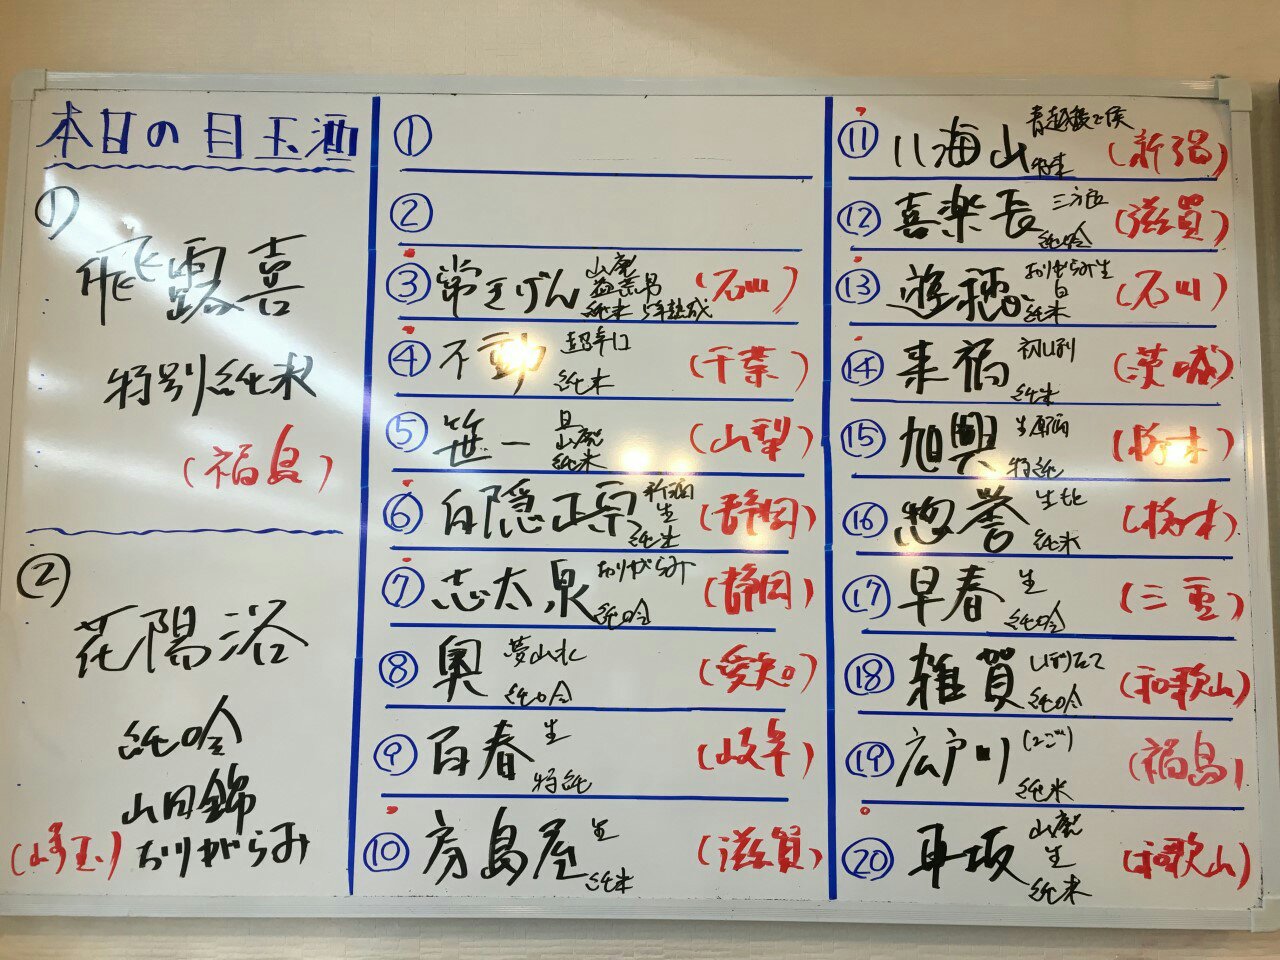 本日の目玉酒
①
飛露喜
特別純米
(福島)
②
花陽浴
純吟
山田錦
おりがらみ
(埼玉)
①
②
③ 常きげん 山廃 純米 5年熟成 (石川)
④ 不動 超辛口 純米 (千葉)
⑤ 笹一 旦 山廃 純米 (山梨)
⑥ 白隠正宗 新酒 生 純米 (静岡)
⑦ 志太泉 おりがらみ 純吟 (静岡)
⑧ 奥 夢山水 純吟 (愛知)
⑨ 百春 生 特純 (岐阜)
⑩ 房島屋 生 純米 (滋賀)
⑪ 八海山 特純 (新潟)
⑫ 喜楽長 純吟 (滋賀)
⑬ 遊穂 おりがらみ生 白 純米 (石川)
⑭ 来福 初しぼり 純米 (茨城)
⑮ 旭興 生原酒 特純 (栃木)
⑯ 惣誉 生酛 純米 (栃木)
⑰ 早春 生 純吟 (三重)
⑱ 雑賀 しぼりたて 純吟 (和歌山)
⑲ 広戸川 にごり 純米 (福島)
⑳ 車坂 山廃 生 純米 (和歌山)